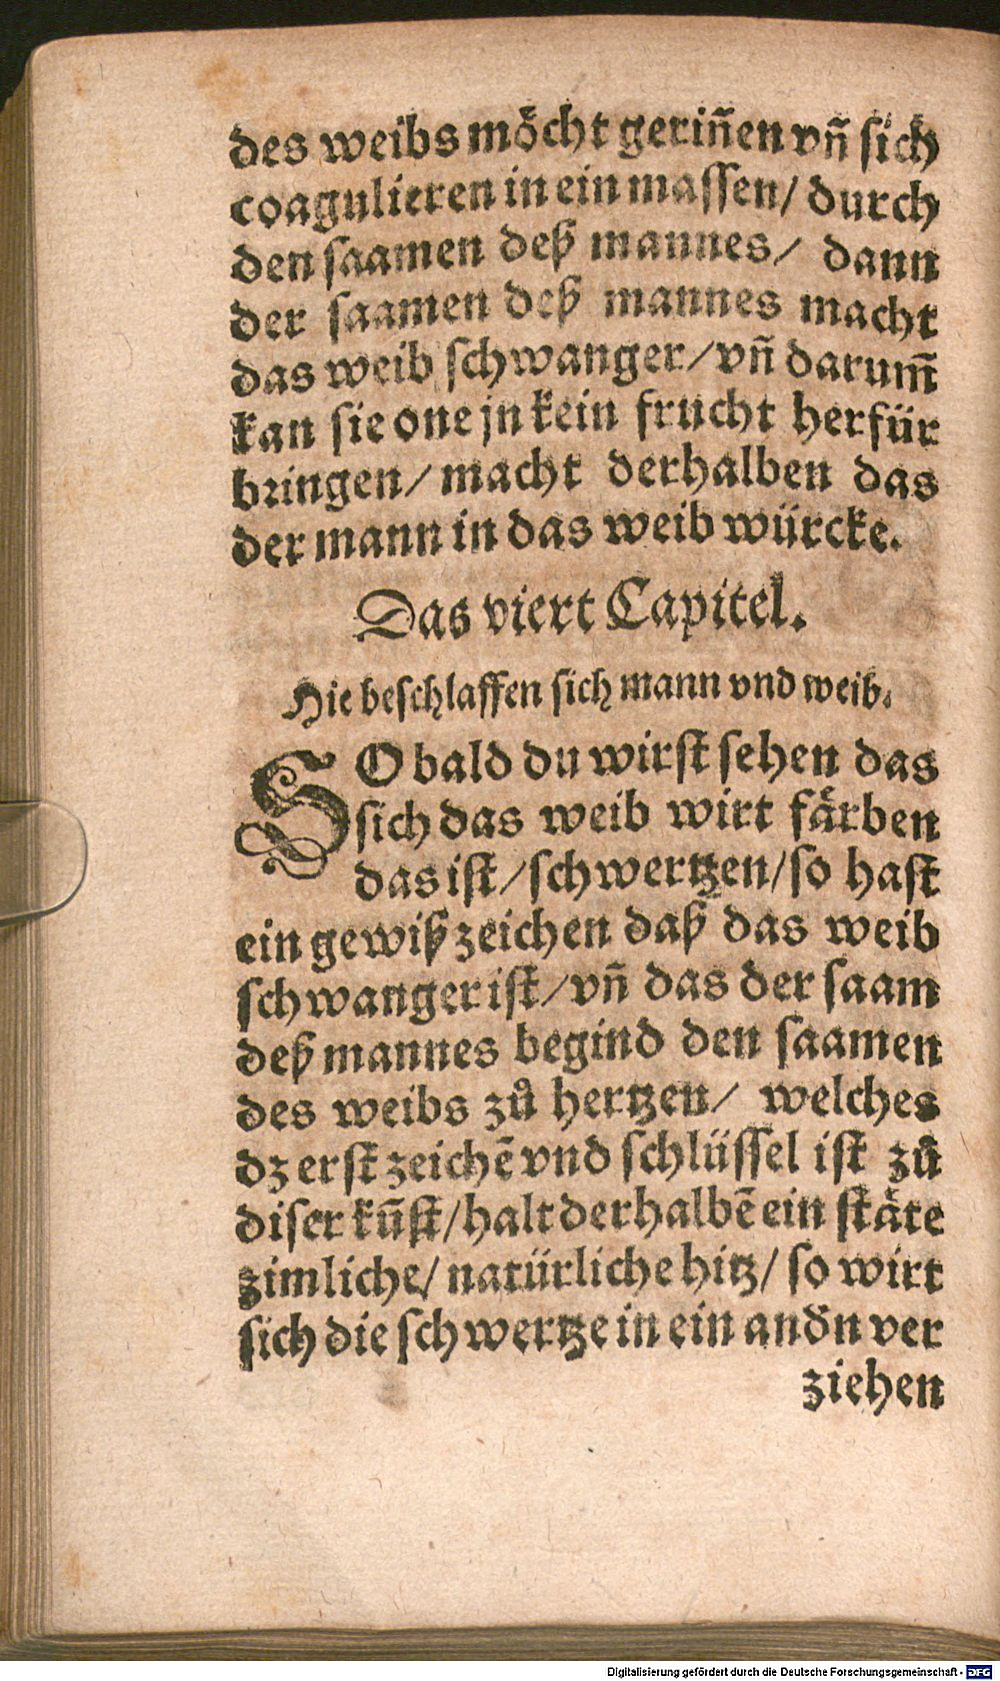 des weibs mo̊cht geriñen vñ sich
coagulieren in ein massen/ durch
den saamen deß mannes/ dann
der saamen deß mannes macht
das weib schwanger/vñ darum̃
kan sie one jn kein frucht herfür
bringen/ macht derhalben das
der mann in das weib würcke.
Das viert Capitel.
Hie beschlaffen sich mann vnd weib.
SO bald du wirst sehen das
sich das weib wirt fårben
das ist/schwertzen/so hast
ein gewiß zeichen daß das weib
schwanger ist/vñ das der saam
deß mannes begind den saamen
des weibs zů hertzen/ welches
dz erst zeichẽ vnd schlüssel ist zů
diser kũst/halt derhalbẽ ein ståte
zimliche/ natürliche hitz/ so wirt
sich die schwertze in ein andn ver
ziehen
Digitalisierung gefördert durch die Deutsche Forschungsgemeinschaft - DFG